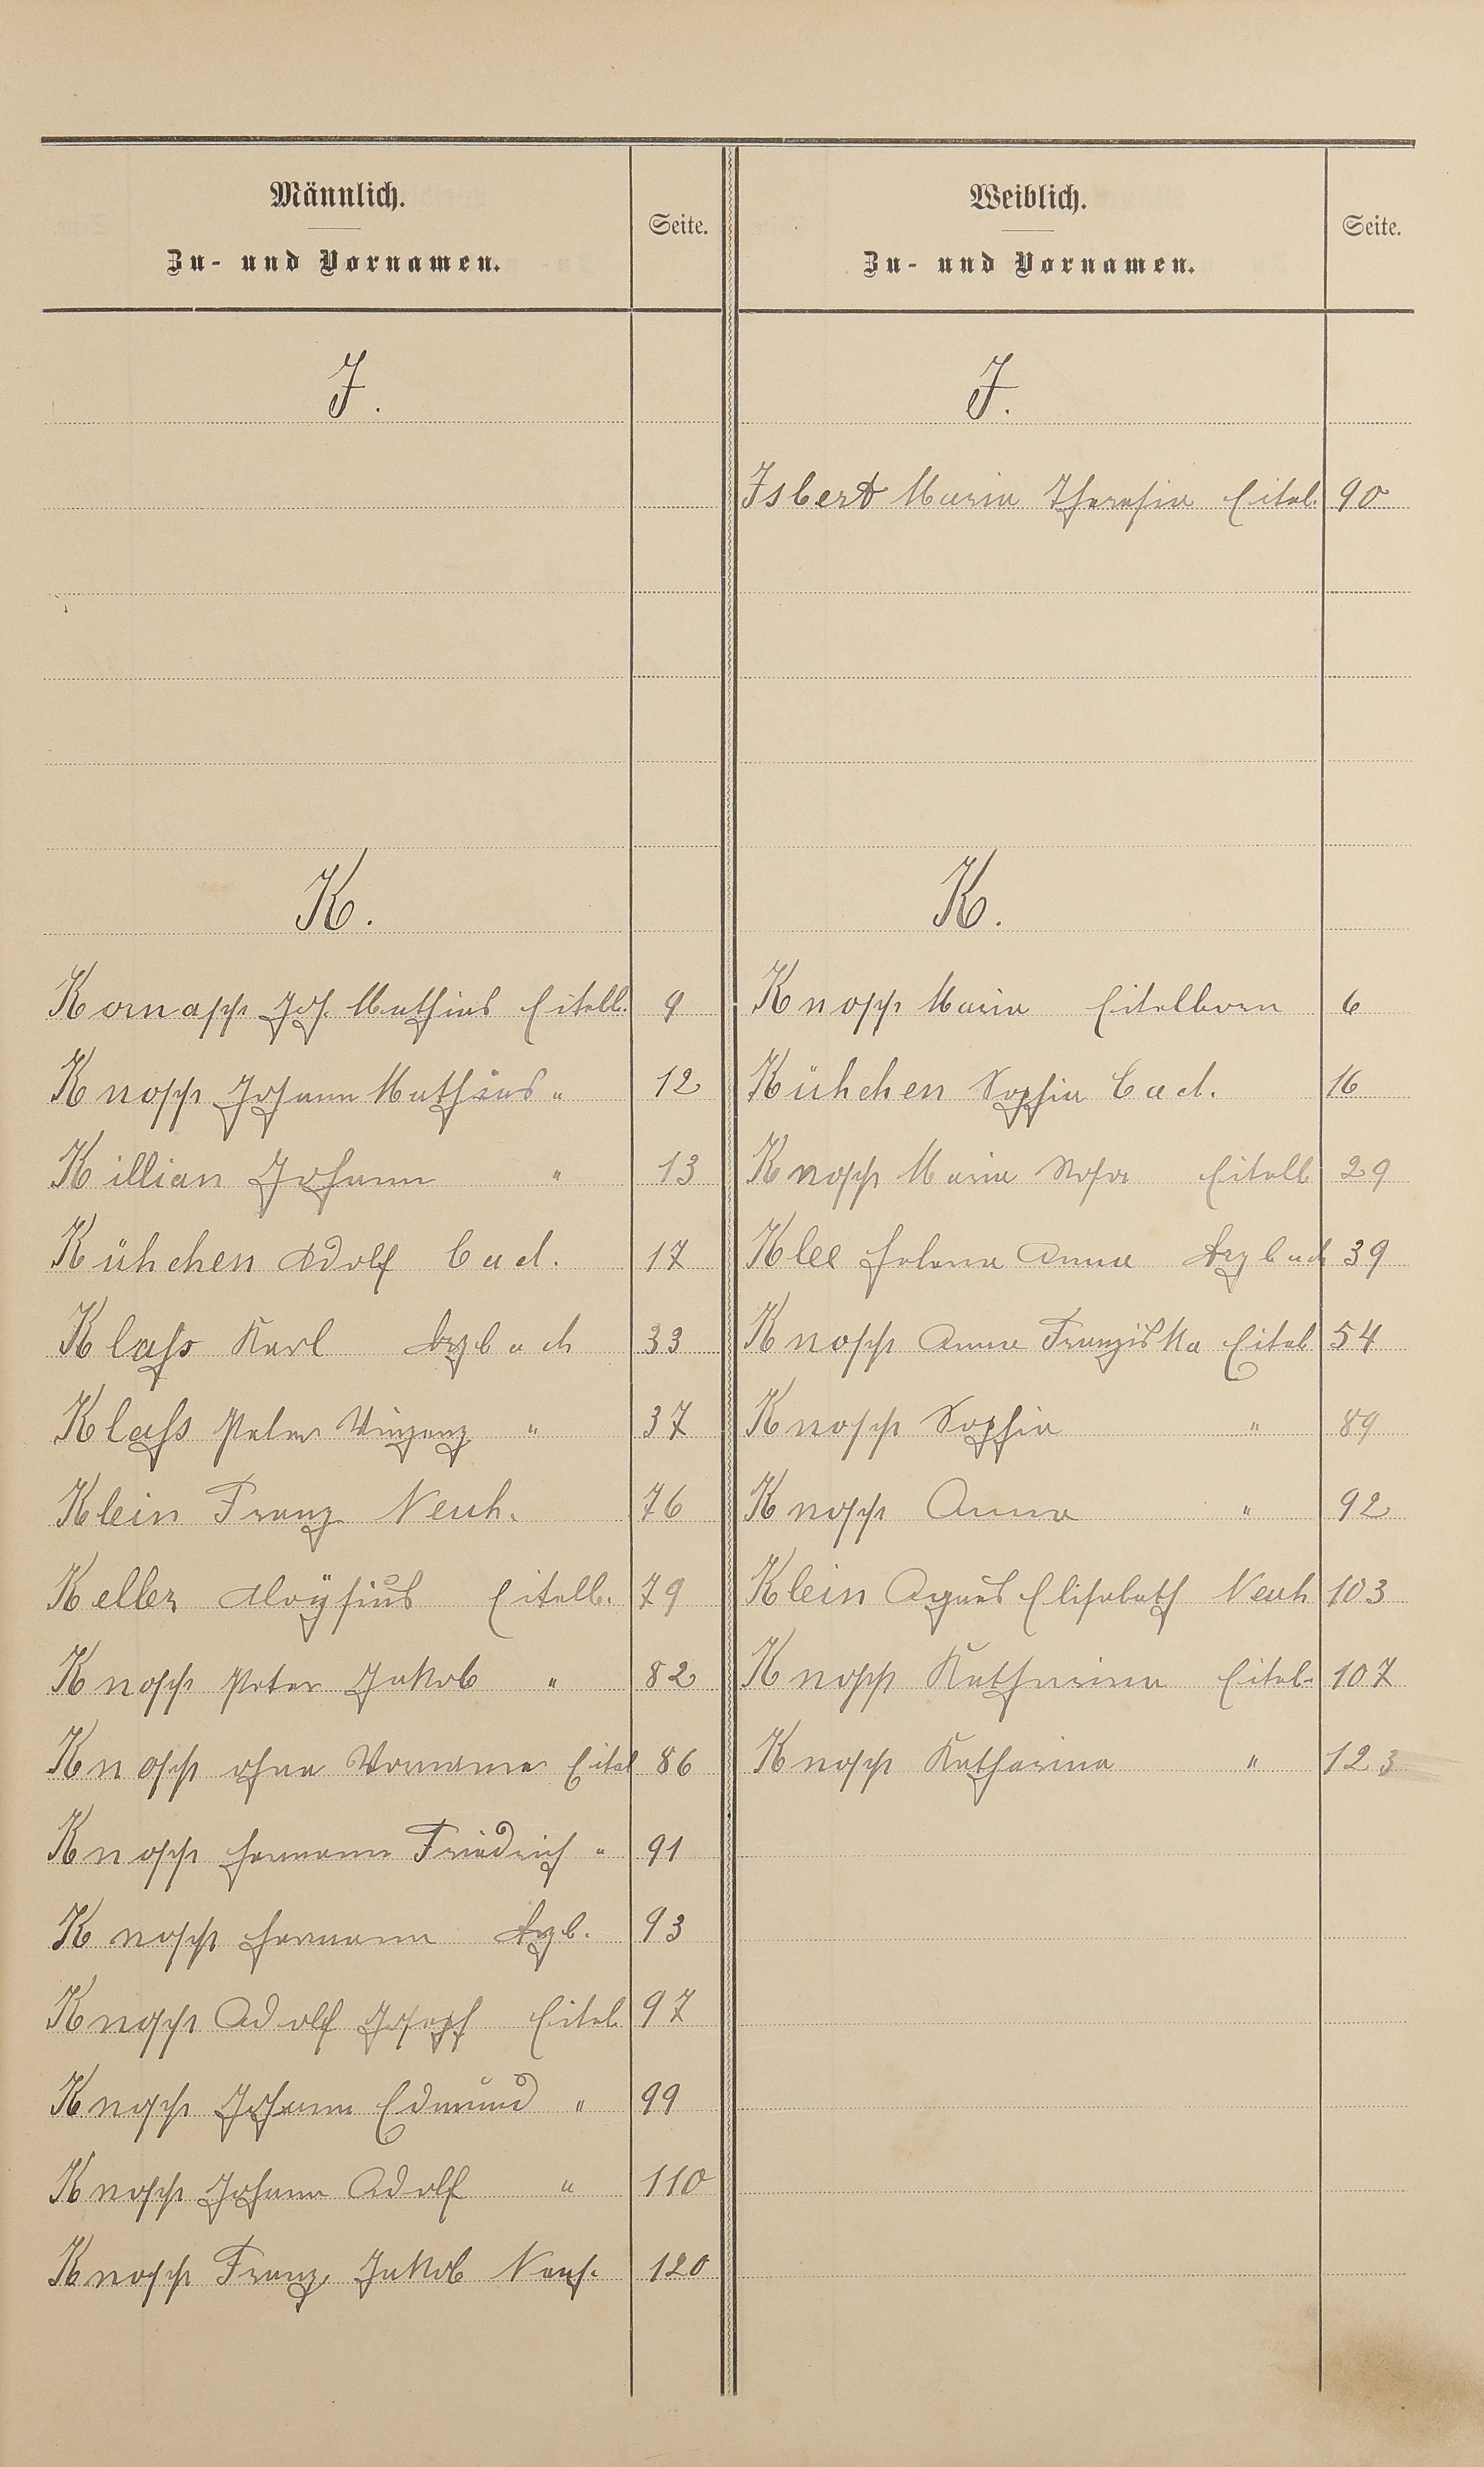 Männlich.
Zu- und Vornamen.
Seite.
J.
K.
Kornapp Joh. Mathias Eitelb. 9
Knopp Johann Mathias " 12
Killian Johann " 13
Kühchen Adolf Cad. 17
Klass Karl Arzbach 33
Klass Peter Vinzenz " 37
Klein Franz Neuh. 76
Keller Aloÿsius Eitelb. 79
Knopp Peter Jakob " 82
Knopp ohne Vorname Eitel 86
Knopp Hermann Friedrich " 91
Knopp Hermann Arzb. 93
Knopp Adolf Joseph Eitelb. 97
Knopp Johann Edmund " 99
Knopp Johann Adolf " 110
Knopp Franz Jakob Neuh. 120
Weiblich.
Zu- und Vornamen.
Seite.
J.
Isbert Maria Theresia Eitelb. 90
K.
Knopp Maria Eitelborn 6
Kühchen Sophia Cad. 16
Knopp Maria Rosa Eitelb 29
Klee Helena Anna Arzbach 39
Knopp Anna Franziska Eitelb 54
Knopp Sophia " 89
Knopp Anna " 92
Klein Agnes Elisabeth Neuh 103
Knopp Katharina Eitelb. 107
Knopp Katharina " 123